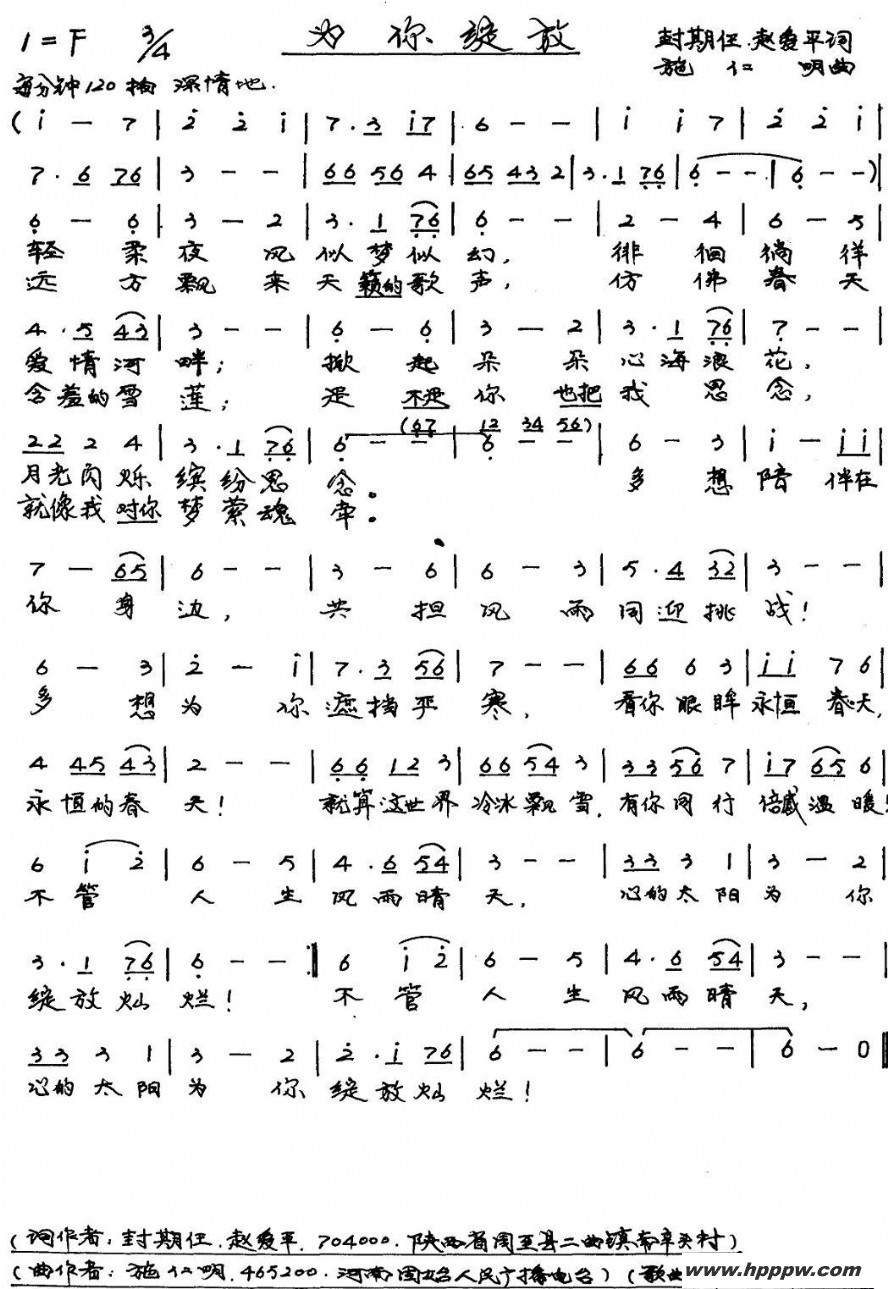 1=F 3/4 为你绽放 封期任.赵爱平词
每分钟120拍 深情地. 施仁明曲
(i̇ - 7 | 2̇ 2̇ i̇ | 7.3 i̇7 | 6 - - | i̇ i̇ 7 | 2̇ 2̇ i̇ |
7.6 76 | 3 - - | 66 56 4 | 65 43 2 | 3.1 7̣6̣ | 6̣ - - | 6̣ - -)|
6̣ - 6̣ | 3 - 2 | 3.1 7̣6̣ | 6̣ - - | 2 - 4 | 6 - 5 |
轻柔夜风似梦似幻, 徘徊徜徉
远方飘来天籁的歌声, 仿佛春天
4.5 43 | 3 - - | 6̣ - 6̣ | 3 - 2 | 3.1 7̣6̣ | 7̣ - - |
爱情河畔; 掀起朵朵心海浪花,
含羞的雪莲; 是不是你也把我思念,
(6̣7̣ 12 34 56)
22 2 4 | 3.1 7̣6̣ | 6̣ - - | 6̣ - - | 6 - 3 | i̇ - i̇i̇ |
月光闪烁缤纷思念。 多想陪伴在
就像我对你梦萦魂牵。
7 - 65 | 6 - - | 3 - 6 | 6 - 3 | 5.4 32 | 3 - - |
你身边, 共担风雨同迎挑战!
6 - 3 | 2̇ - i̇ | 7.3 56 | 7 - - | 66 6 3 | i̇i̇ 7 6 |
多想为你遮挡严寒, 看你眼眸永恒春天,
4 45 43 | 2 - - | 6̣6̣ 12 3 | 66 54 3 | 33 56 7 | i̇7 65 6 |
永恒的春天! 就算这世界冷冰飘雪,有你同行倍感温暖!
6 i̇ 2̇ | 6 - 5 | 4.6 54 | 3 - - | 33 3 1 | 3 - 2 |
不管人生风雨晴天, 心的太阳为你
3.1 7̣6̣ | 6̣ - - :‖ 6 i̇ 2̇ | 6 - 5 | 4.6 54 | 3 - - |
绽放灿烂! 不管人生风雨晴天,
33 3 1 | 3 - 2 | 2̇.i̇ 76 | 6 - - | 6 - - | 6 - 0 ‖
心的太阳为你绽放灿烂!
(词作者:封期任.赵爱平.704000.陕西省周至县二曲镇南辛头村)
(曲作者:施仁明.465200.河南固始人民广播电台)(歌曲
www.hpppw.com